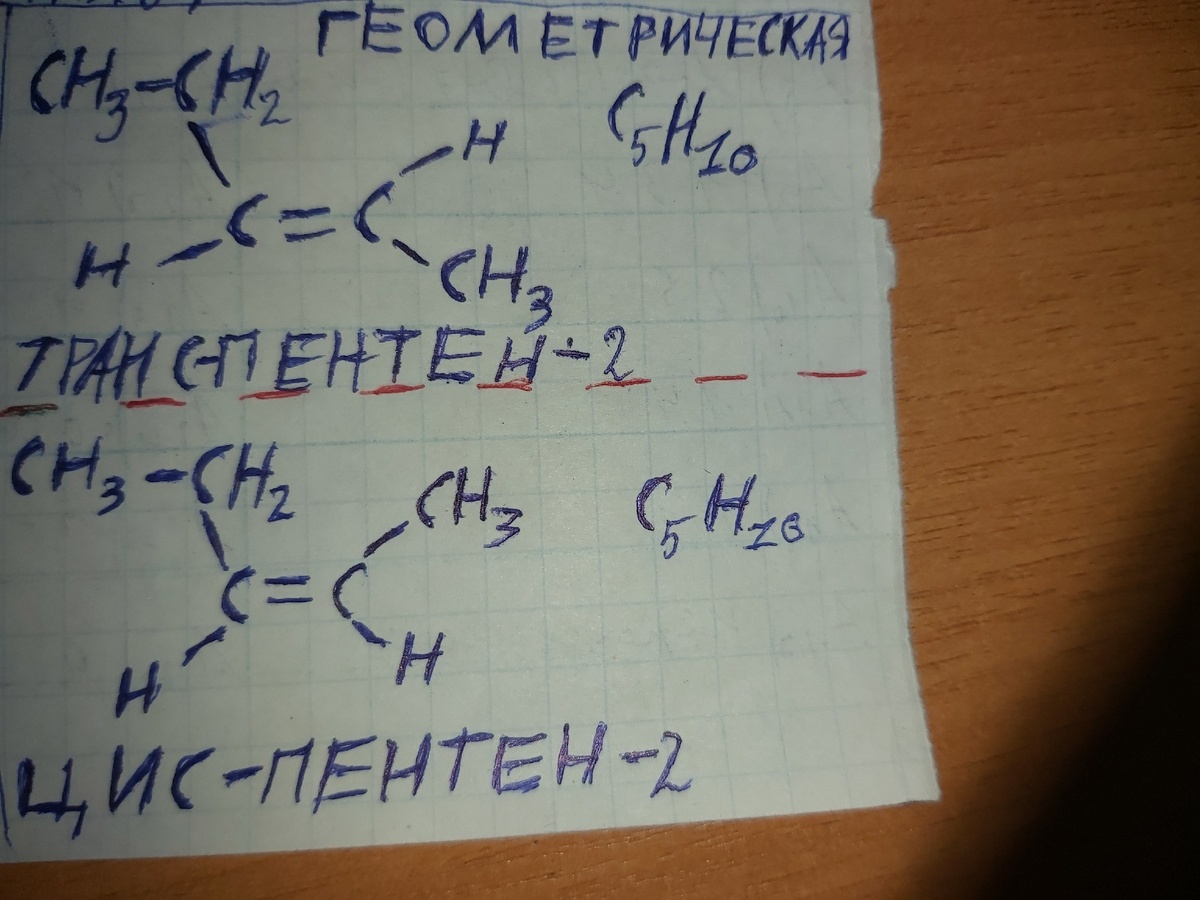 ГЕОМЕТРИЧЕСКАЯ
CH3-CH2
C5H10
H
C=C
H
CH3
ТРАНС-ПЕНТЕН-2
CH3-CH2
CH3
C5H10
C=C
H
H
ЦИС-ПЕНТЕН-2